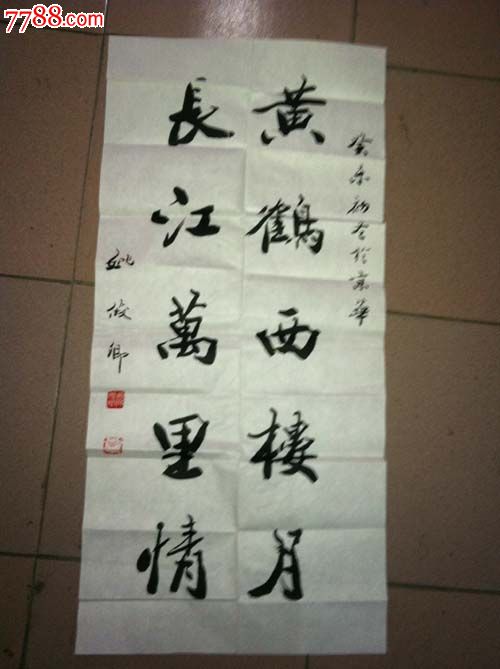 7788.com
黄鶴西樓月
長江萬里情
癸未初春於京華
姚俊卿